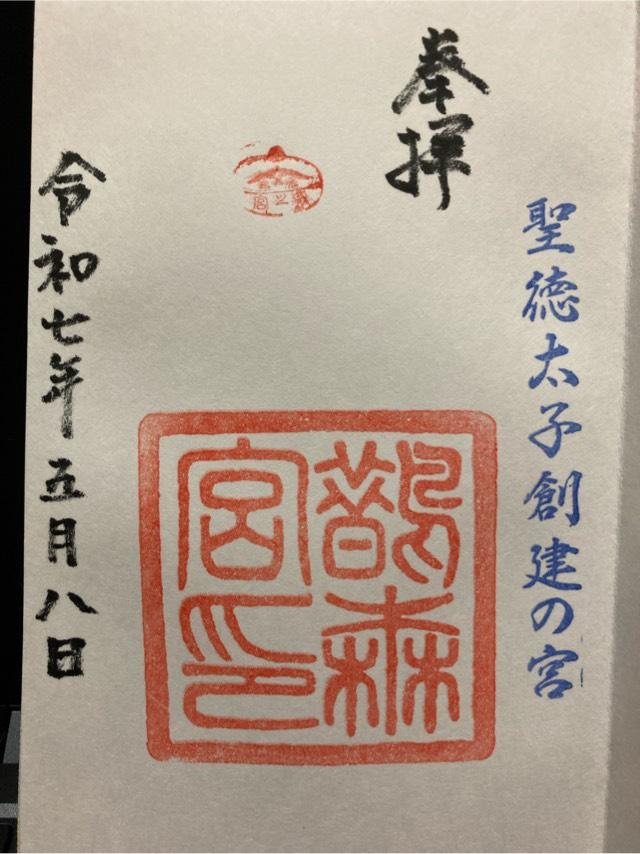 聖徳太子創建の宮
奉拝
鵲森
宮印
令和七年五月八日